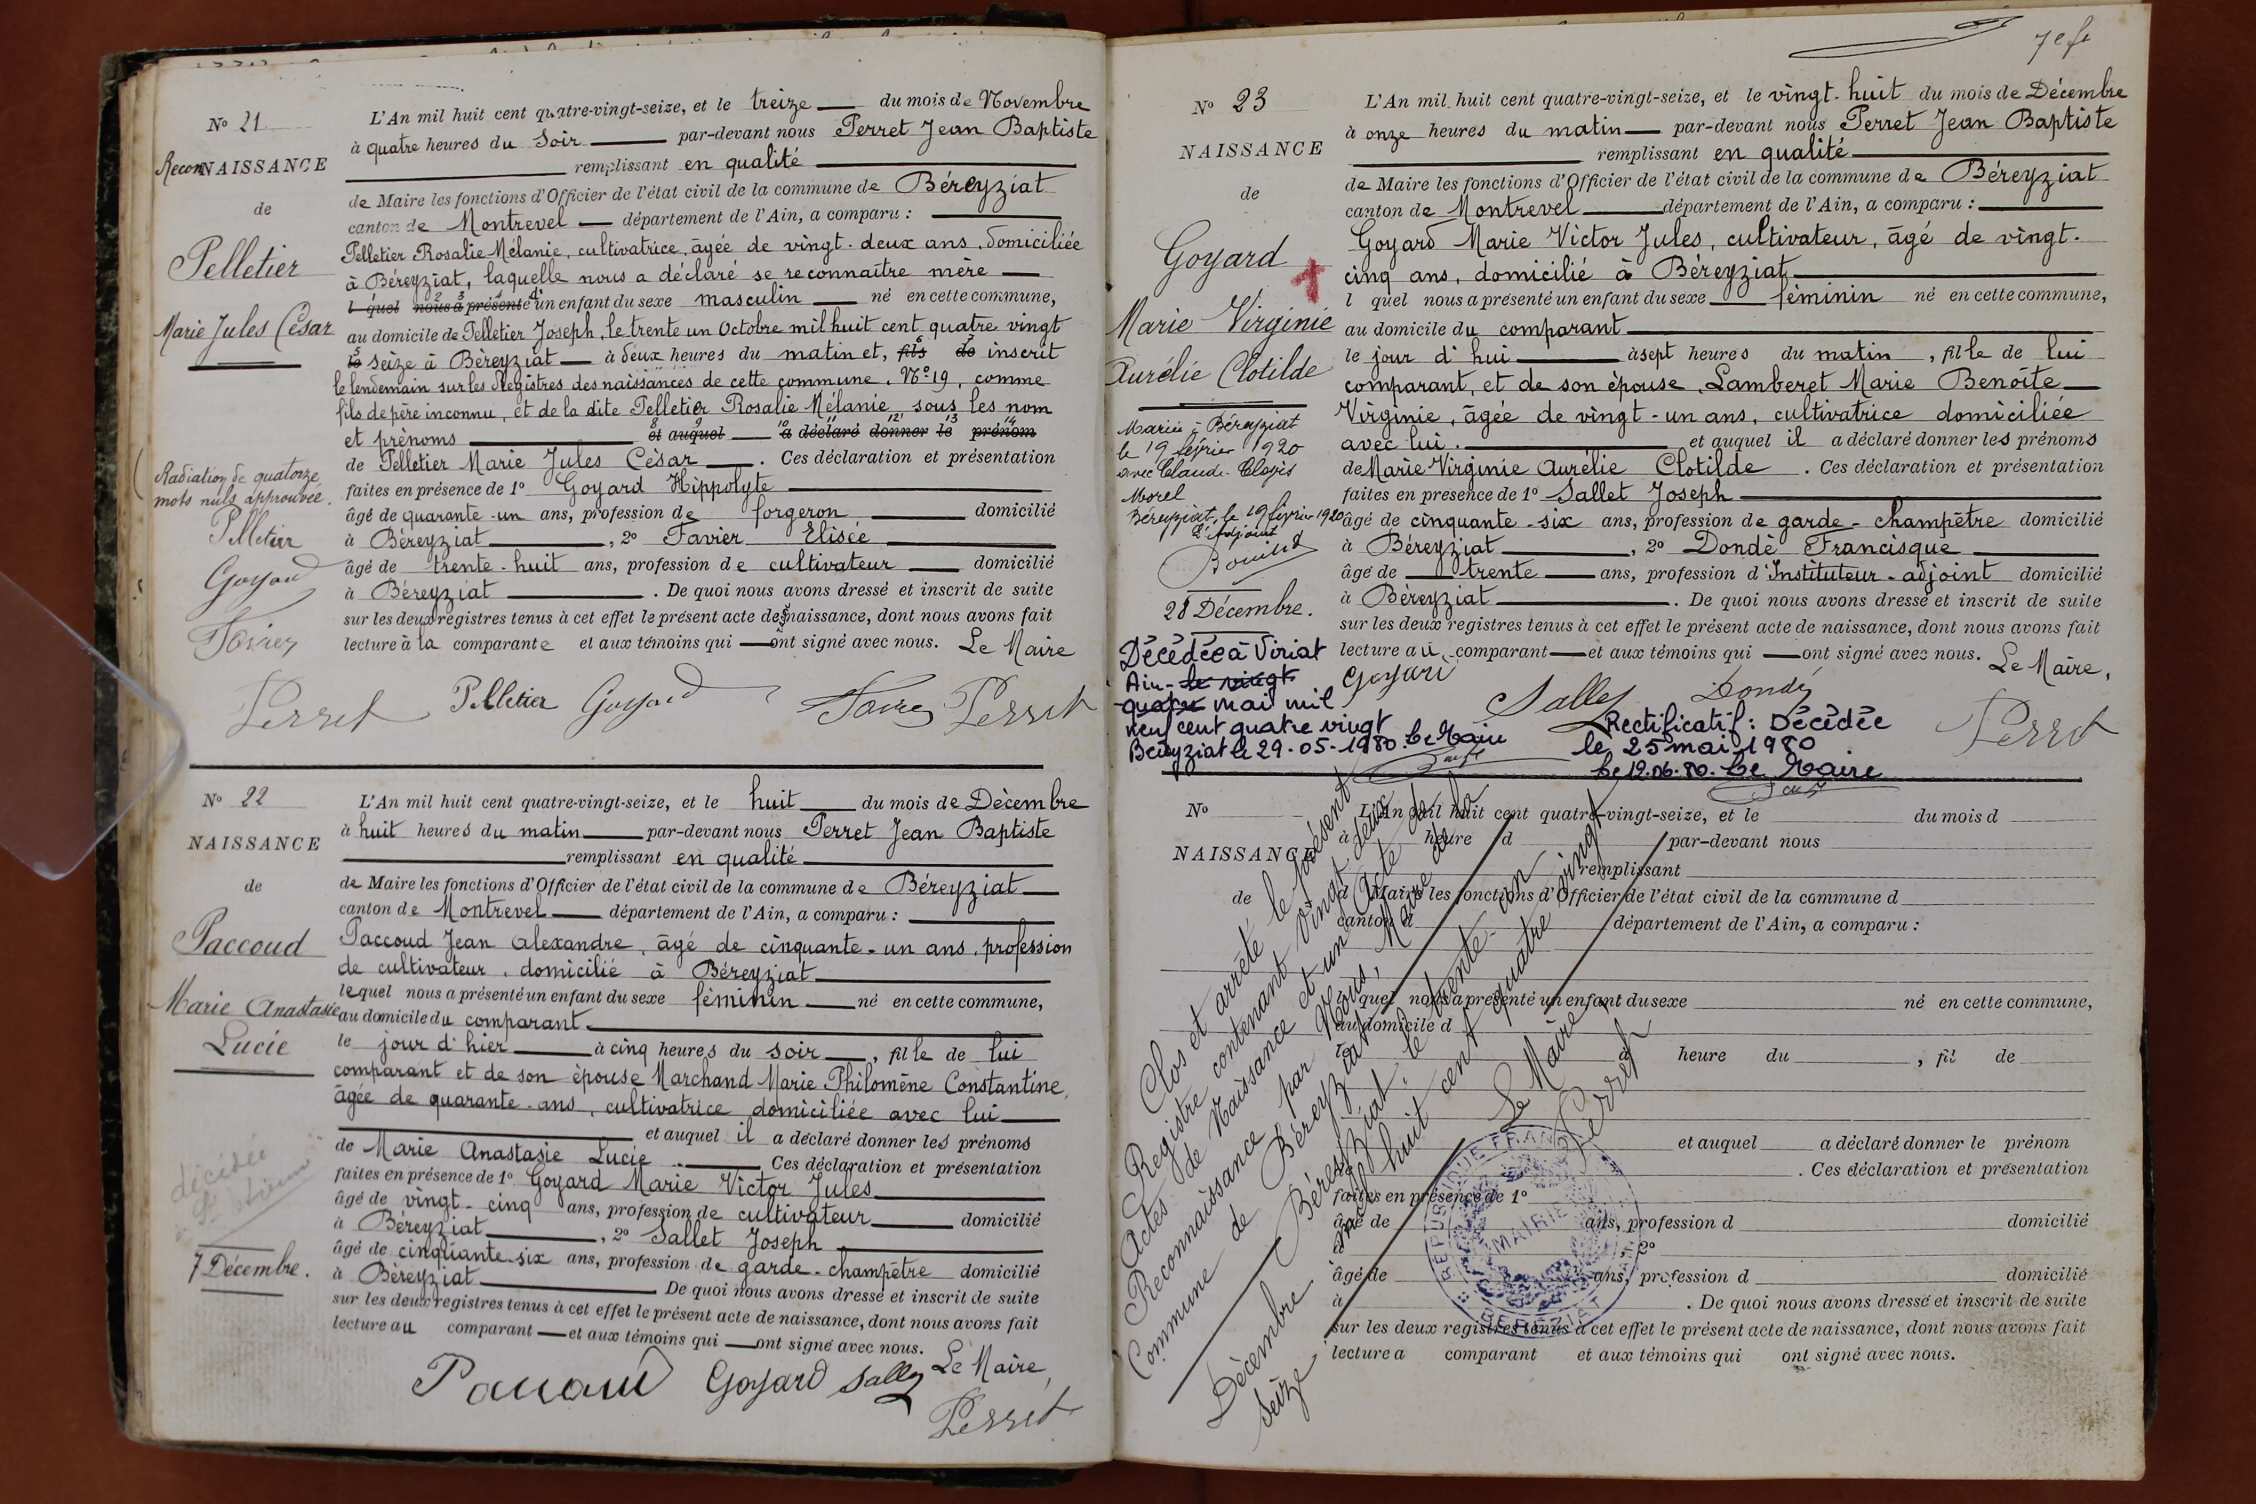 N° 21
ReconNAISSANCE
de
Pelletier
Marie Jules César
Radiation de quatorze
mots nuls approuvée.
Pelletier
Goyard
Favier
L'An mil huit cent quatre-vingt-seize, et le treize du mois de Novembre
à quatre heures du soir par-devant nous Perret Jean Baptiste
remplissant en qualité
de Maire les fonctions d'Officier de l'état civil de la commune de Béreyziat
canton de Montrevel département de l'Ain, a comparu :
Pelletier Rosalie Mélanie, cultivatrice, âgée de vingt-deux ans, domiciliée
à Béreyziat, laquelle nous a déclaré se reconnaître mère
l quel nous a présenté d'un enfant du sexe masculin né en cette commune,
au domicile de Pelletier Joseph, le trente un Octobre mil huit cent quatre vingt
le seize à Béreyziat à deux heures du matin et, fils de inscrit
le lendemain sur les Registres des naissances de cette commune, N° 19, comme
fils de père inconnu, et de la dite Pelletier Rosalie Mélanie sous les nom
et prénoms et auquel a déclaré donner le prénom
de Pelletier Marie Jules César. Ces déclaration et présentation
faites en présence de 1° Goyard Hippolyte
âgé de quarante-un ans, profession de forgeron domicilié
à Béreyziat, 2° Favier Elisée
âgé de trente-huit ans, profession de cultivateur domicilié
à Béreyziat. De quoi nous avons dressé et inscrit de suite
sur les deux registres tenus à cet effet le présent acte de naissance, dont nous avons fait
lecture à la comparante et aux témoins qui ont signé avec nous. Le Maire
Perret Pelletier Goyard Favier Perret
N° 22
NAISSANCE
de
Paccoud
Marie Anastasie
Lucie
décédée
7 Décembre.
L'An mil huit cent quatre-vingt-seize, et le huit du mois de Décembre
à huit heures du matin par-devant nous Perret Jean Baptiste
remplissant en qualité
de Maire les fonctions d'Officier de l'état civil de la commune de Béreyziat
canton de Montrevel département de l'Ain, a comparu :
Paccoud Jean Alexandre, âgé de cinquante-un ans, profession
de cultivateur, domicilié à Béreyziat
lequel nous a présenté un enfant du sexe féminin né en cette commune,
au domicile du comparant
le jour d'hier à cinq heures du soir, fille de lui
comparant et de son épouse Marchand Marie Philomène Constantine,
âgée de quarante-ans, cultivatrice domiciliée avec lui
et auquel il a déclaré donner les prénoms
de Marie Anastasie Lucie. Ces déclaration et présentation
faites en présence de 1° Goyard Marie Victor Jules
âgé de vingt-cinq ans, profession de cultivateur domicilié
à Béreyziat, 2° Sallet Joseph
âgé de cinquante-six ans, profession de garde-champêtre domicilié
à Béreyziat De quoi nous avons dressé et inscrit de suite
sur les deux registres tenus à cet effet le présent acte de naissance, dont nous avons fait
lecture au comparant et aux témoins qui ont signé avec nous.
Le Maire,
Paccoud Goyard Sallet
Perret
7e f
N° 23
NAISSANCE
de
Goyard
Marie Virginie
Aurélie Clotilde
Mariée à Béreyziat
le 19 février 1920
avec Claude-Clovis
Morel
Béreyziat, le 19 février 1920
L'Adjoint
28 Décembre.
Décédée à Viriat
Ain - le vingt
quatre mai mil
neuf cent quatre vingt
Béreyziat le 29-05-1980. Le Maire
L'An mil huit cent quatre-vingt-seize, et le vingt-huit du mois de Décembre
à onze heures du matin par-devant nous Perret Jean Baptiste
remplissant en qualité
de Maire les fonctions d'Officier de l'état civil de la commune de Béreyziat
canton de Montrevel département de l'Ain, a comparu :
Goyard Marie Victor Jules, cultivateur, âgé de vingt-
cinq ans, domicilié à Béreyziat
l quel nous a présenté un enfant du sexe féminin né en cette commune,
au domicile du comparant
le jour d'hui à sept heures du matin, fille de lui
comparant, et de son épouse, Lamberet Marie Benoîte
Virginie, âgée de vingt-un ans, cultivatrice domiciliée
avec lui. et auquel il a déclaré donner les prénoms
de Marie Virginie Aurélie Clotilde. Ces déclaration et présentation
faites en présence de 1° Sallet Joseph
âgé de cinquante-six ans, profession de garde-champêtre domicilié
à Béreyziat, 2° Dondé Francisque
âgé de trente ans, profession d'Instituteur-adjoint domicilié
à Béreyziat. De quoi nous avons dressé et inscrit de suite
sur les deux registres tenus à cet effet le présent acte de naissance, dont nous avons fait
lecture au comparant et aux témoins qui ont signé avec nous.
Le Maire,
Goyard Sallet Dondé Perret
Rectificatif : Décédée
le 25 mai 1980.
Le 12.06.80. Le Maire
N°
NAISSANCE
de
L'An mil huit cent quatre-vingt-seize, et le du mois d
à heure d par-devant nous
remplissant
d Maire les fonctions d'Officier de l'état civil de la commune d
canton d département de l'Ain, a comparu :
l quel nous a présenté un enfant du sexe né en cette commune,
au domicile d
le à heure du , fil de
et auquel a déclaré donner le prénom
de . Ces déclaration et présentation
faites en présence de 1°
âgé de ans, profession d domicilié
à , 2°
âgé de ans, profession d domicilié
à . De quoi nous avons dressé et inscrit de suite
sur les deux registres tenus à cet effet le présent acte de naissance, dont nous avons fait
lecture a comparant et aux témoins qui ont signé avec nous.
Clos et arrêté le présent
Registre contenant vingt deux
Actes de Naissance et un Acte de
Reconnaissance, par Nous, Maire de la
Commune de Béreyziat
Béreyziat, le trente-un
Décembre mil huit cent quatre vingt
seize
Le Maire,
Perret
REPUBLIQUE FRANÇAISE
MAIRIE
BEREZIAT